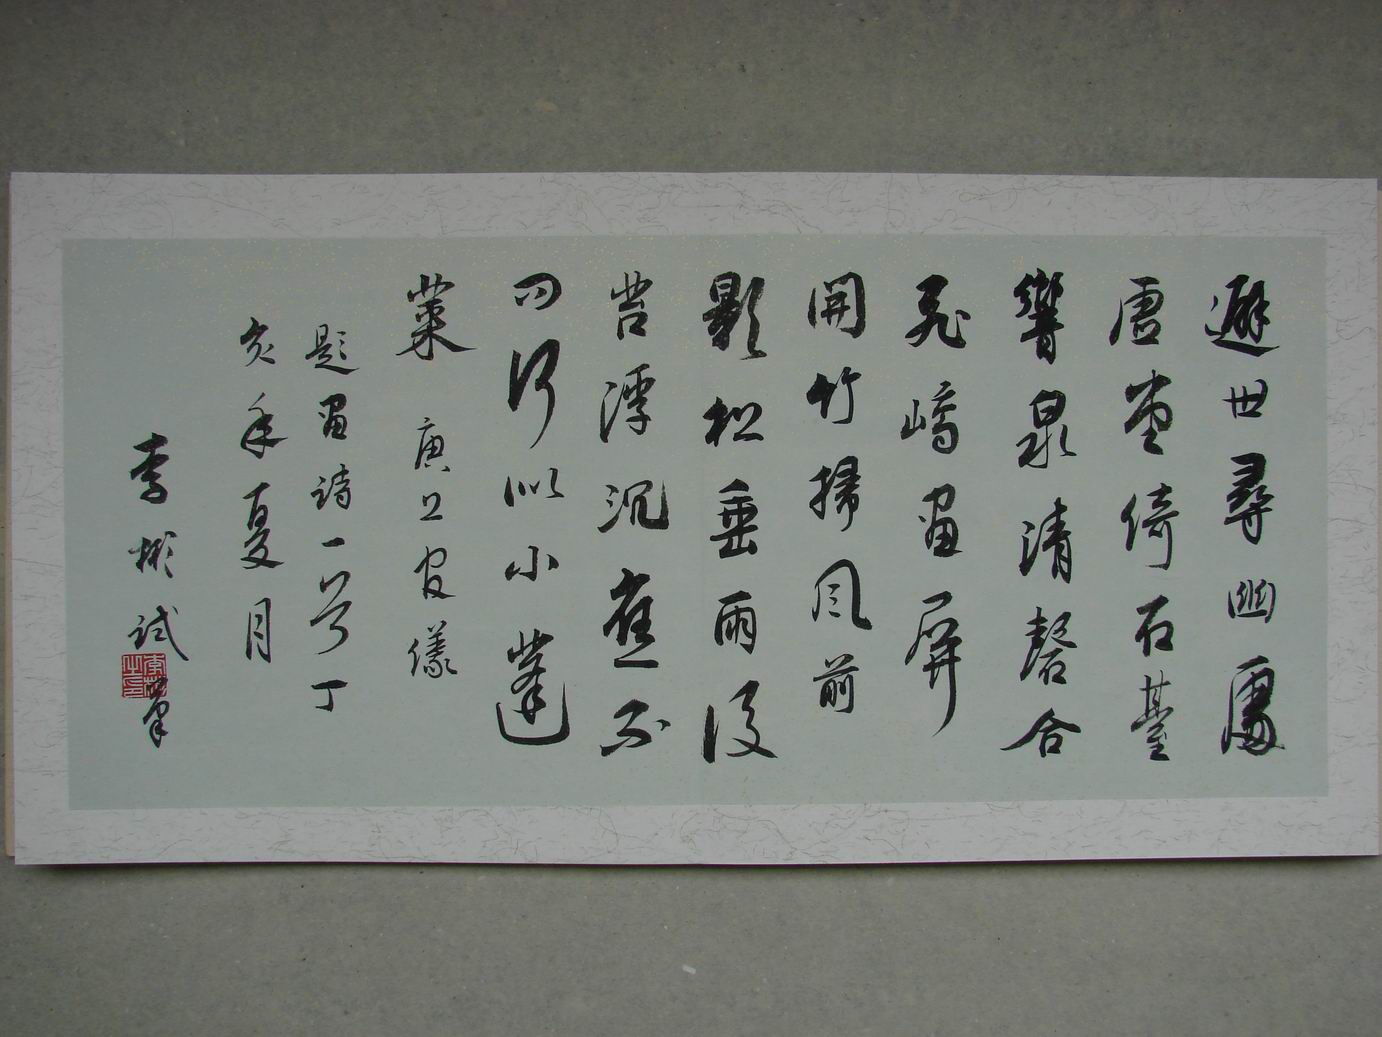 避世尋幽處
唐堂倚石臺
響泉清磬合
飛嶠畫屏
開竹掃風前
影松垂雨後
苔浮沉應不
問何似小蓬
萊 唐上官儀
題畫詩一首丁
亥年夏月
李彬試筆